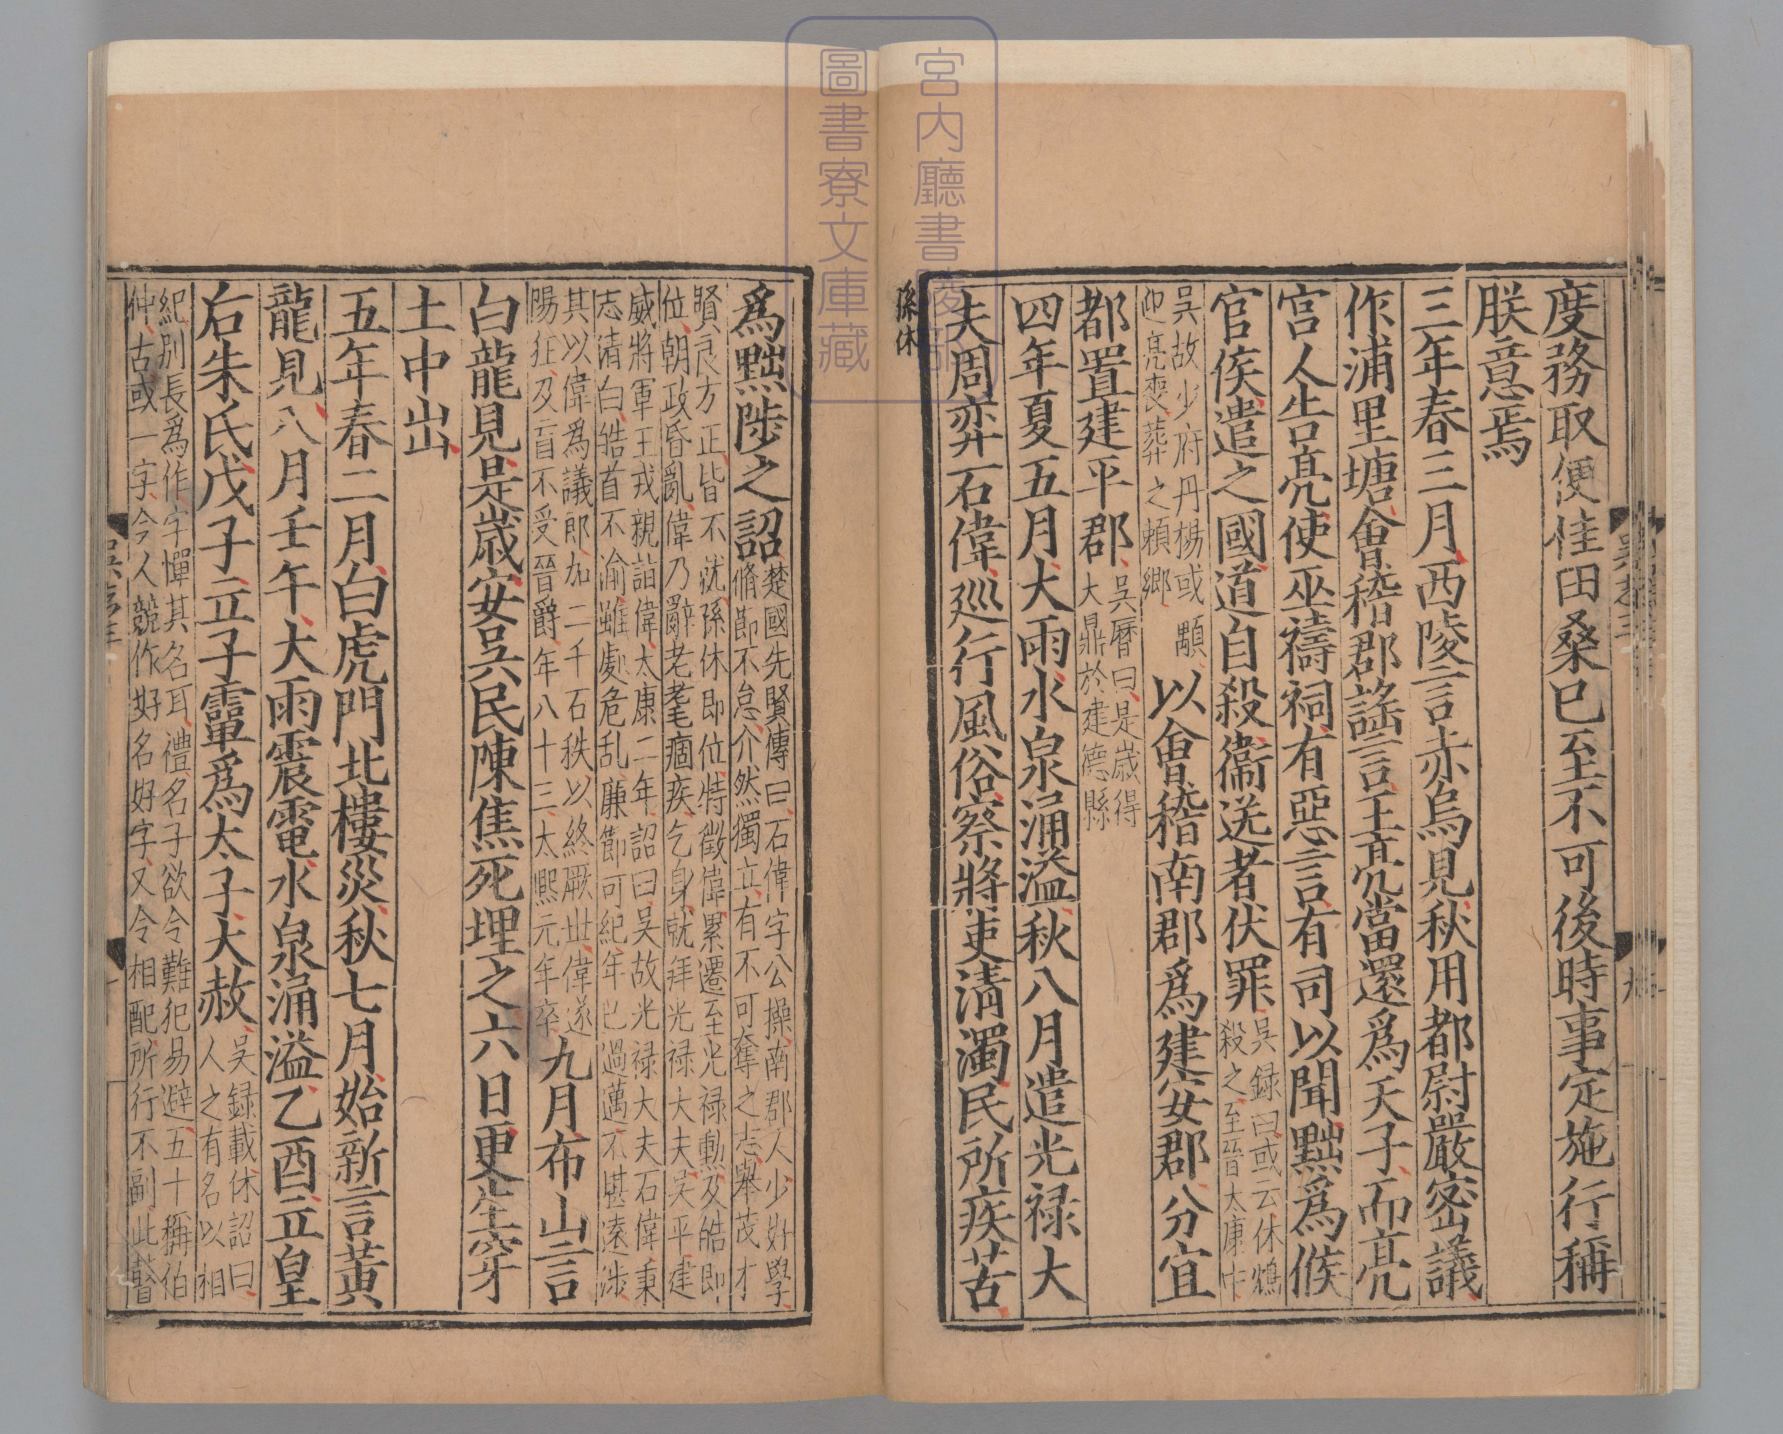 度務取便佳田桑已至不可後時事定施行稱
朕意焉
三年春三月西陵言赤烏見秋用都尉嚴密議
作浦里塘會稽郡謠言王亮當還爲天子而亮
宮人告亮使巫禱祠有惡言有司以聞黜爲候
官侯遣之國道自殺衞送者伏罪
吳録曰或云休鴆
殺之至晉太康中
吳故少府丹楊或顒
迎亮喪葬之賴鄉
以會稽南郡爲建安郡分宜
都置建平郡
吳曆曰是歲得
大鼎於建德縣
四年夏五月大雨水泉涌溢秋八月遣光禄大
夫周弈石偉巡行風俗察將吏清濁民所疾苦
孫休
爲黜陟之詔
楚國先賢傳曰石偉字公操南郡人少好學
脩節不怠介然獨立有不可奪之志舉茂才
賢良方正皆不就孫休即位特徵偉累遷至光禄勳及皓即
位朝政昏亂偉乃辭老耄痼疾乞身就拜光禄大夫吳平建
威將軍王戎親詣偉太康二年詔曰吳故光禄大夫石偉秉
志清白皓首不渝雖處危乱廉節可紀年已過邁不堪遠涉
其以偉爲議郎加二千石秩以終厥世偉遂
陽狂及盲不受晉爵年八十三太熙元年卒
九月布山言
白龍見是歲安吳民陳焦死埋之六日更生穿
土中出
五年春二月白虎門北樓災秋七月始新言黃
龍見八月壬午大雨震電水泉涌溢乙酉立皇
后朱氏戊子立子𩅦爲太子大赦
吳録載休詔曰
人之有名以相
紀別長爲作字憚其名耳禮名子欲令難犯易避五十稱伯
仲古或一字今人競作好名好字又令相配所行不副此瞽
宮内廳書陵部
圖書寮文庫藏